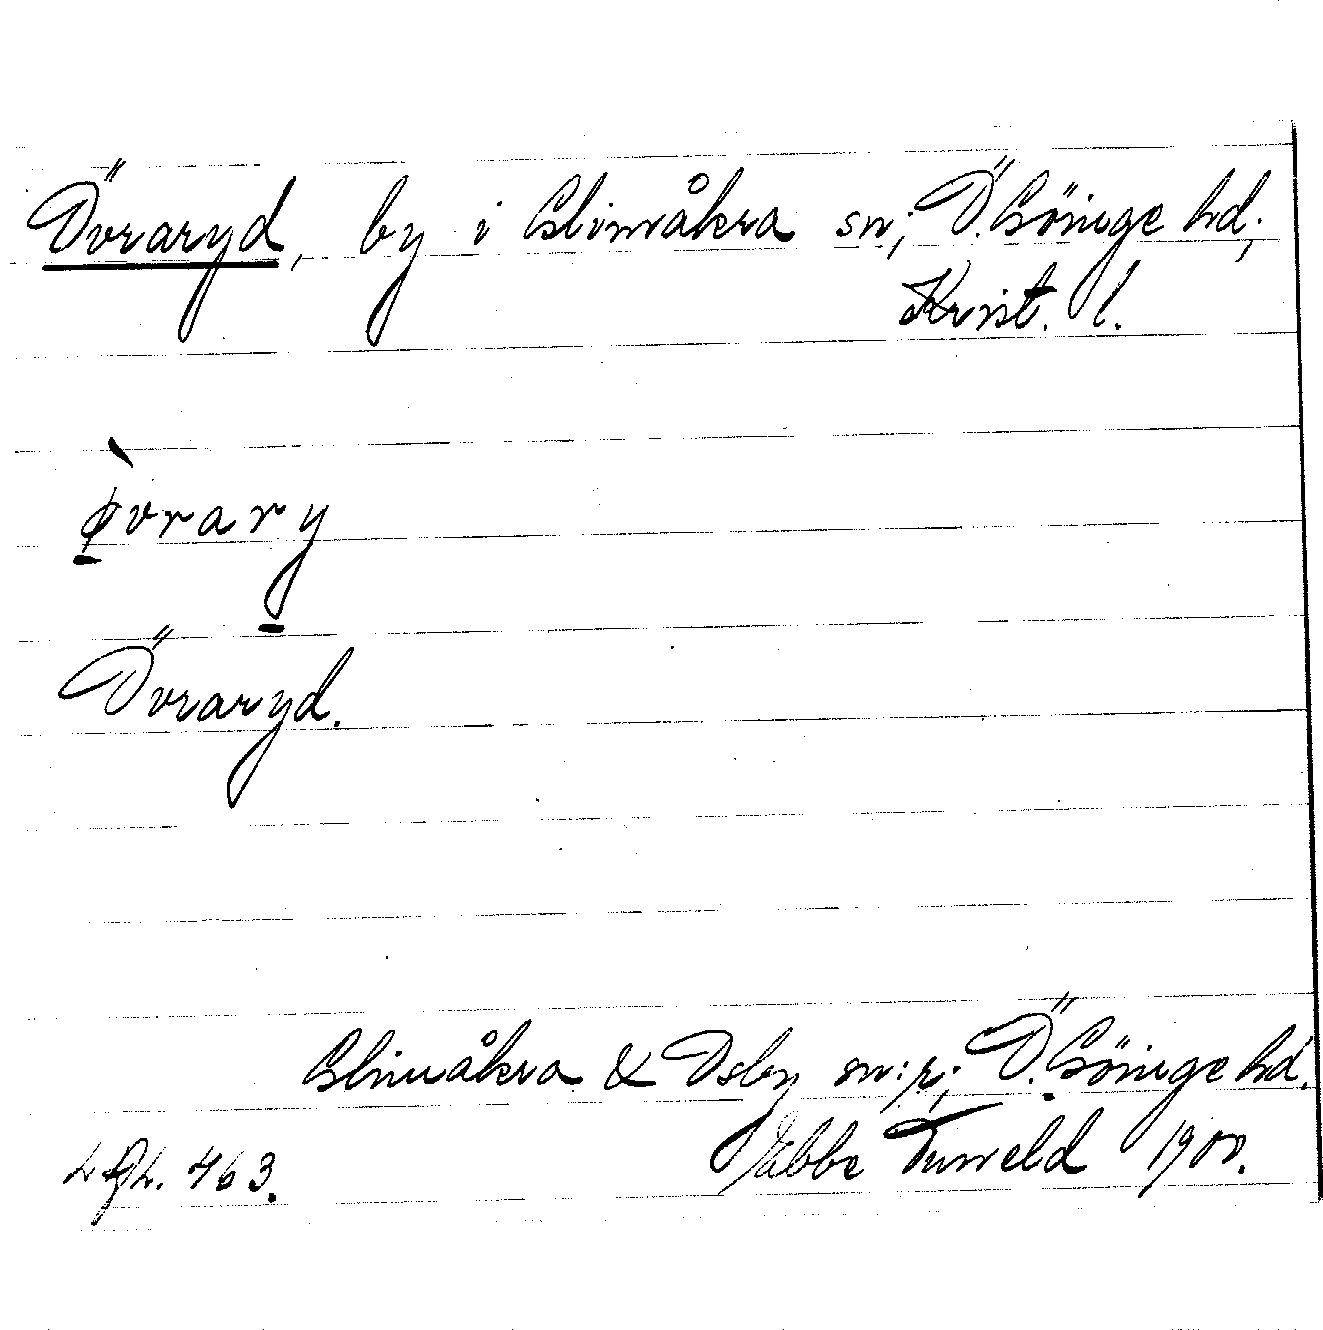 Övraryd, by i Glimåkra sn; Ö. Göinge hd;
Krist. l.
ø̠̀vrary̠
Övraryd.
Glimåkra & Osby sn:r; Ö. Göinge hd.
Ebbe Tuneld 1900.
463.